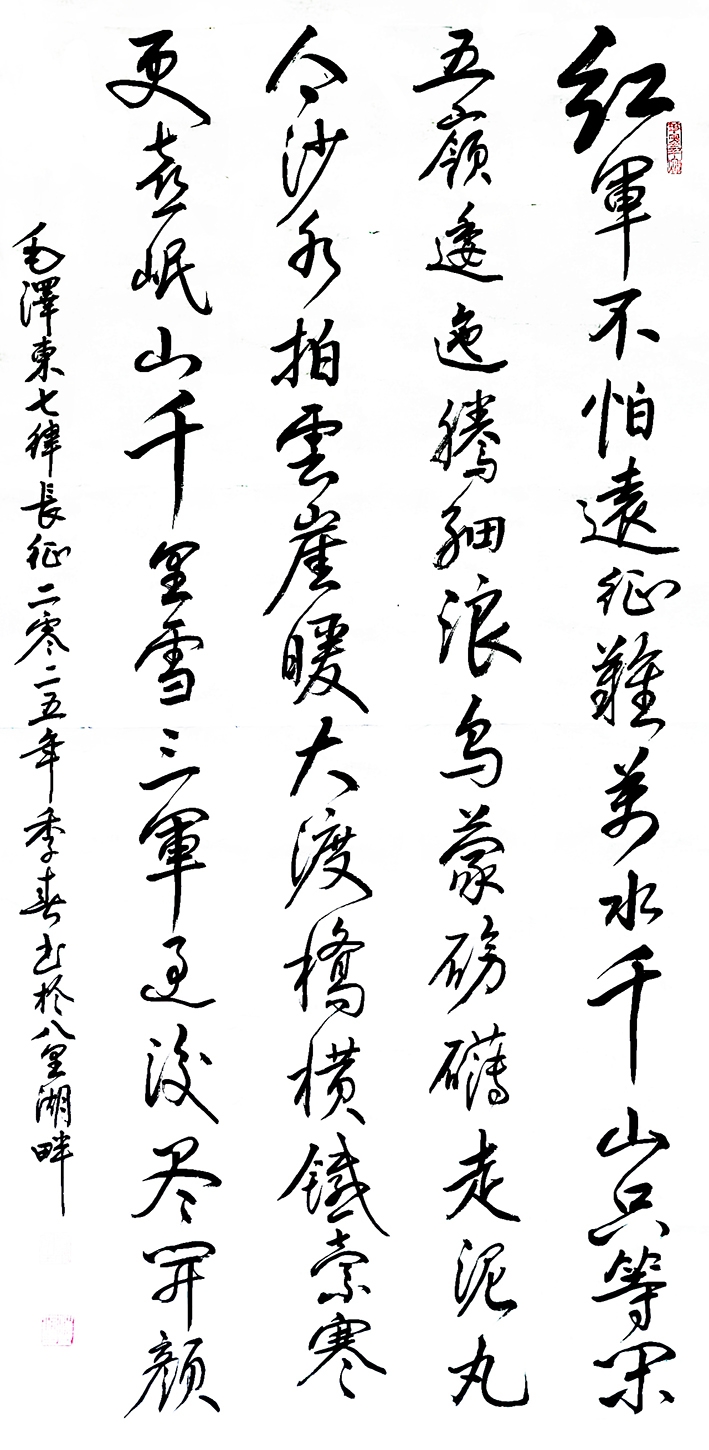 紅軍不怕遠征難萬水千山只等閑
五嶺逶迤騰細浪烏蒙磅礴走泥丸
金沙水拍雲崖暖大渡橋横鐵索寒
更喜岷山千里雪三軍過後尽開顔
毛澤東七律長征二零二五年季春书於八里湖畔